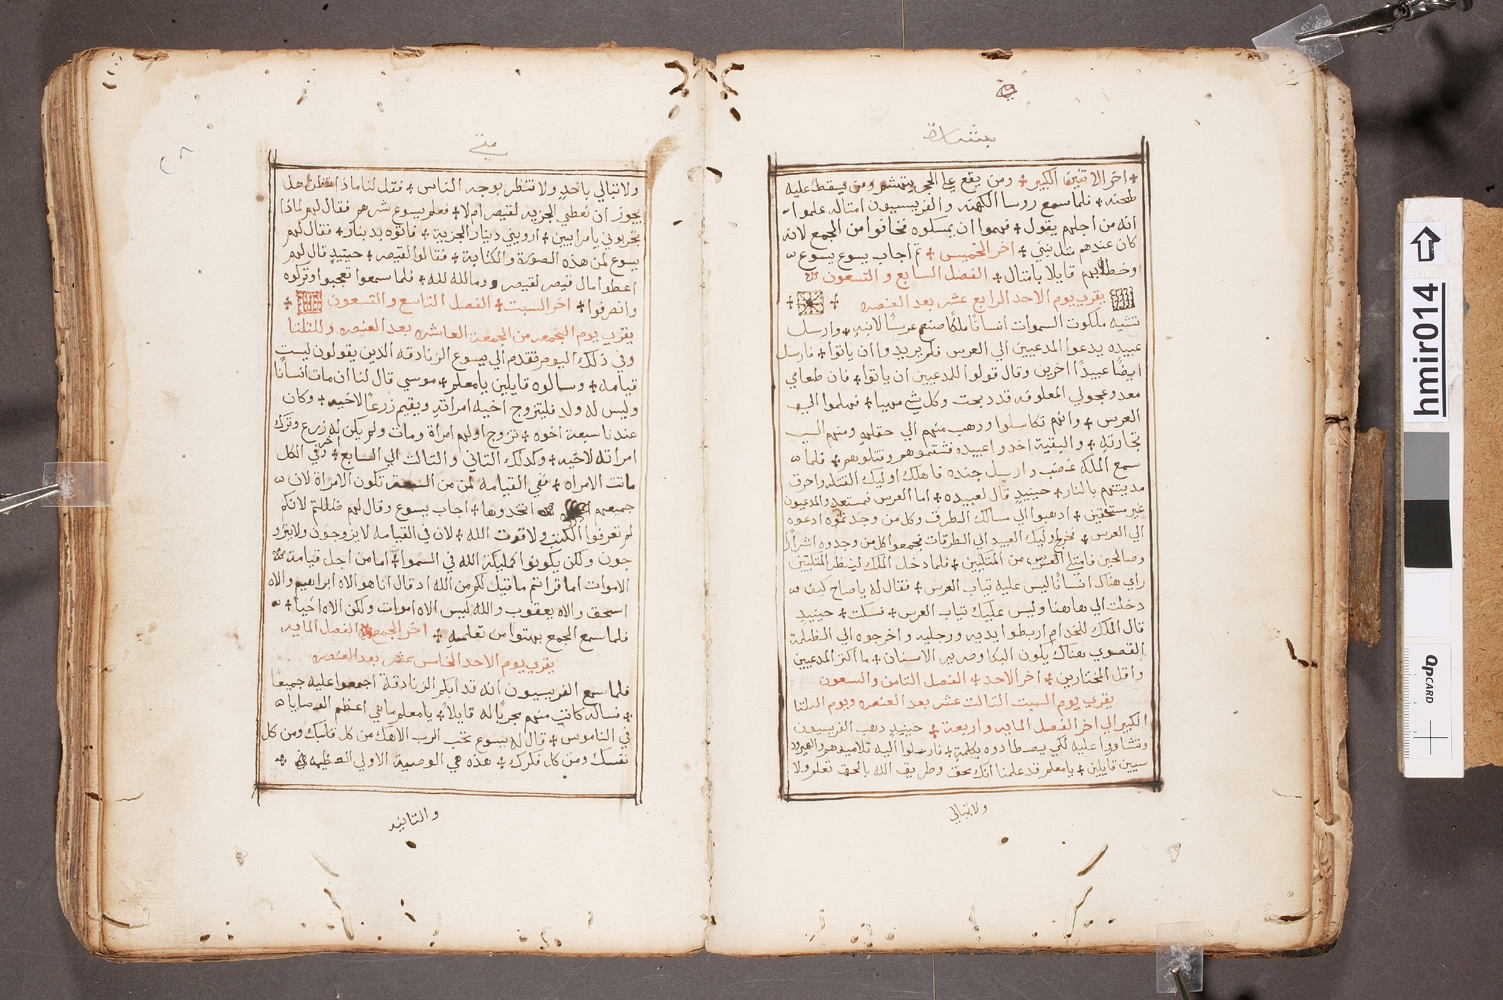 بشارة
+ اخر الاثنين الكبير + ومن يقع علي الحجر يتهشم ومن يسقط عليه
طحنه + فلما سمع روسا الكهنه والفريسيون امثاله علموا
انه من اجلهم يقول + فهموا ان يمسكوه فخافوا من الجمع لانه
كان عندهم مثل نبي + اخر الخميس + ثم اجاب يسوع
وخطابهم قايلا بامثال + الفصل السابع و التسعون
يقري يوم الاحد الرابع عشر بعد العنصره
تشبه ملكوت السموات انسانا ملكا صنع عرسا لابنه + وارسل
عبيده يدعوا المدعيين الي العرس فلم يريدوا ان ياتوا + فارسل
ايضا عبيدا اخرين وقال قولوا للمدعيين ان ياتوا + فان طعامي
معد وعجولي المعلوفه قد دبحت وكل شي مهيا + فهلموا الي
العرس + وانهم تكاسلوا وذهب منهم الي حقله ومنهم الي
تجارته + والبقية اخدوا عبيده فشتموهم وقتلوهم + فلما
سمع الملك غضب وارسل جنده فاهلك اوليك القتله واحرق
مدينتهم بالنار + حينيد قال لعبيده + اما العرس فمستعد والمدعيون
غير مستحقين + ادهبوا الي مسالك الطرق وكل من وجدتموه ادعوه
الي العرس + فخرج اوليك العبيد الي الطرقات فجمعوا كل من وجدوه اشرار
وصالحين فامتلا العرس من المتكيين + فلما دخل الملك لينظر المتكيين
راي هناك انسانا ليس عليه تياب العرس + فقال له ياصاح كيف
دخلت الي هاهنا وليس عليك تياب العرس + فسكت + حينيد
قال الملك للخدام اربطوا يديه ورجليه واخرجوه الي الظلمة
القصوي هناك يكون البكا وصرير الاسنان + ما اكثر المدعيين
واقل المختارين + اخر الاحد + الفصل الثامن والتسعون
يقري يوم السبت الثالث عشر بعد العنصره ويوم الثلثا
الكبير الي اخر الفصل المايه واربعة + حينيد دهب الفريسيون
وتشاوروا عليه لكي يصطادوه بكلمة + فارسلوا اليه تلاميدهم والهيرود
سيين قايلين + يامعلم قد علمنا انك محق وطريق الله بالحق تعلم ولا
ولاتبالي
متي
ولاتبالي باحد ولا تنظر بوجه الناس + فقل لنا ماذا تظن هل
يجوز ان نعطي الجزيه لقيصر ام لا + فعلم يسوع شرهم فقال لهم لماذا
تجربوني يامرايين + اروني دينار الجزية + فاتوه بدينار + فقال لهم
يسوع لمن هذه الصورة والكتابة + فقالوا لقيصر + حينيد قال لهم
اعطوا مال قيصر لقيصر وما لله لله + فلما سمعوا تعجبوا وتركوه
وانصرفوا + اخر السبت + الفصل التاسع والتسعون +
يقري يوم الجمعه من الجمعه العاشره بعد العنصره وللثلثا
وفي ذلك اليوم تقدم الي يسوع الزنادقه الدين يقولون ليست
قيامه + وسالوه قايلين يامعلم + موسي قال لنا ان مات انسانا
وليس له ولد فليتزوج اخيه امراته ويقيم زرعا لاخيه + وكان
عندنا سبعة اخوه + تزوج اولهم امراة ومات ولم يكن له زرع وترك
امراته لاخيه + وكدلك التاني والتالث الي السابع + وفي اخر الكل
ماتت الامراه + ففي القيامة لمن من السبعه تكون الامراة لان
جميعهم اتخدوها + اجاب يسوع وقال لهم ضللتم لانكم
لم تعرفوا الكتب ولا قوت الله + لان في القيامه لا يزوجون ولا يتزو
جون ولكن يكونوا كمليكة الله في السموات + اما من اجل قيامة
الاموات اما قراتم ما قيل لكم من الله اد قال انا هو الاه ابراهيم والاه
اسحق والاه يعقوب والله ليس الاه اموات ولكن الاه احيا +
فلما سمع الجمع بهتوا من تعليمه + اخر الجمعه الفصل المايه
يقري يوم الاحد الخامس عشر بعد العنصره
فلما سمع الفريسيون انه قد ابكم الزنادقة اجتمعوا عليه جميعا
+ فساله كاتب منهم مجربا له قايلا + يامعلم ماهي اعظم الوصايا
في الناموس + قال له يسوع تحب الرب الاهك من كل قلبك ومن كل
نفسك ومن كل فكرك + هذه هي الوصية الاولي العظيمه +
والتانيه
hmir014
QpCARD